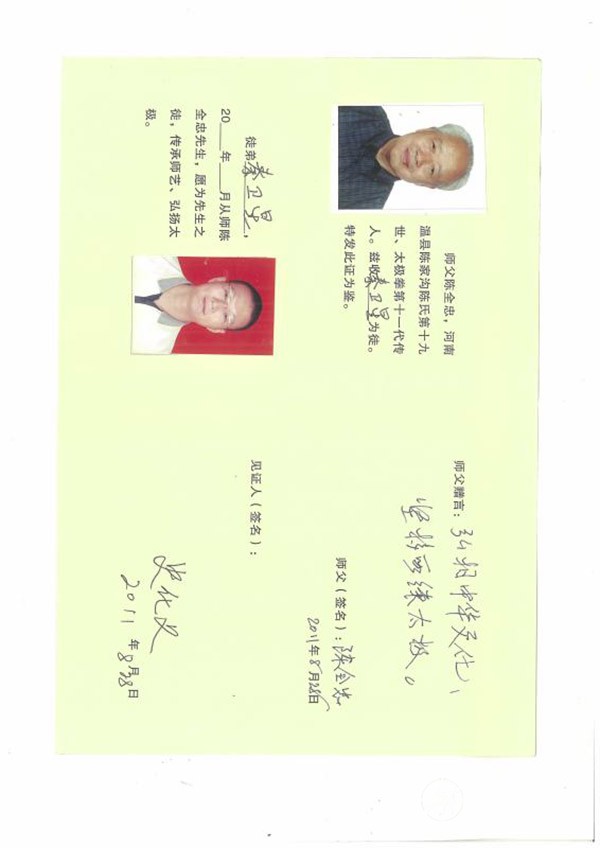 师父陈全忠，河南
温县陈家沟陈氏第十九
世、太极拳第十一代传
人。兹收秦卫星为徒。
特发此证为鉴。
徒弟秦卫星，
20___年___月从师陈
全忠先生，愿为先生之
徒，传承师艺、弘扬太
极。
师父赠言：弘扬中华文化，
坚持要练太极。
师父（签名）：陈全忠
2011年8月28日
见证人（签名）：
2011年8月28日